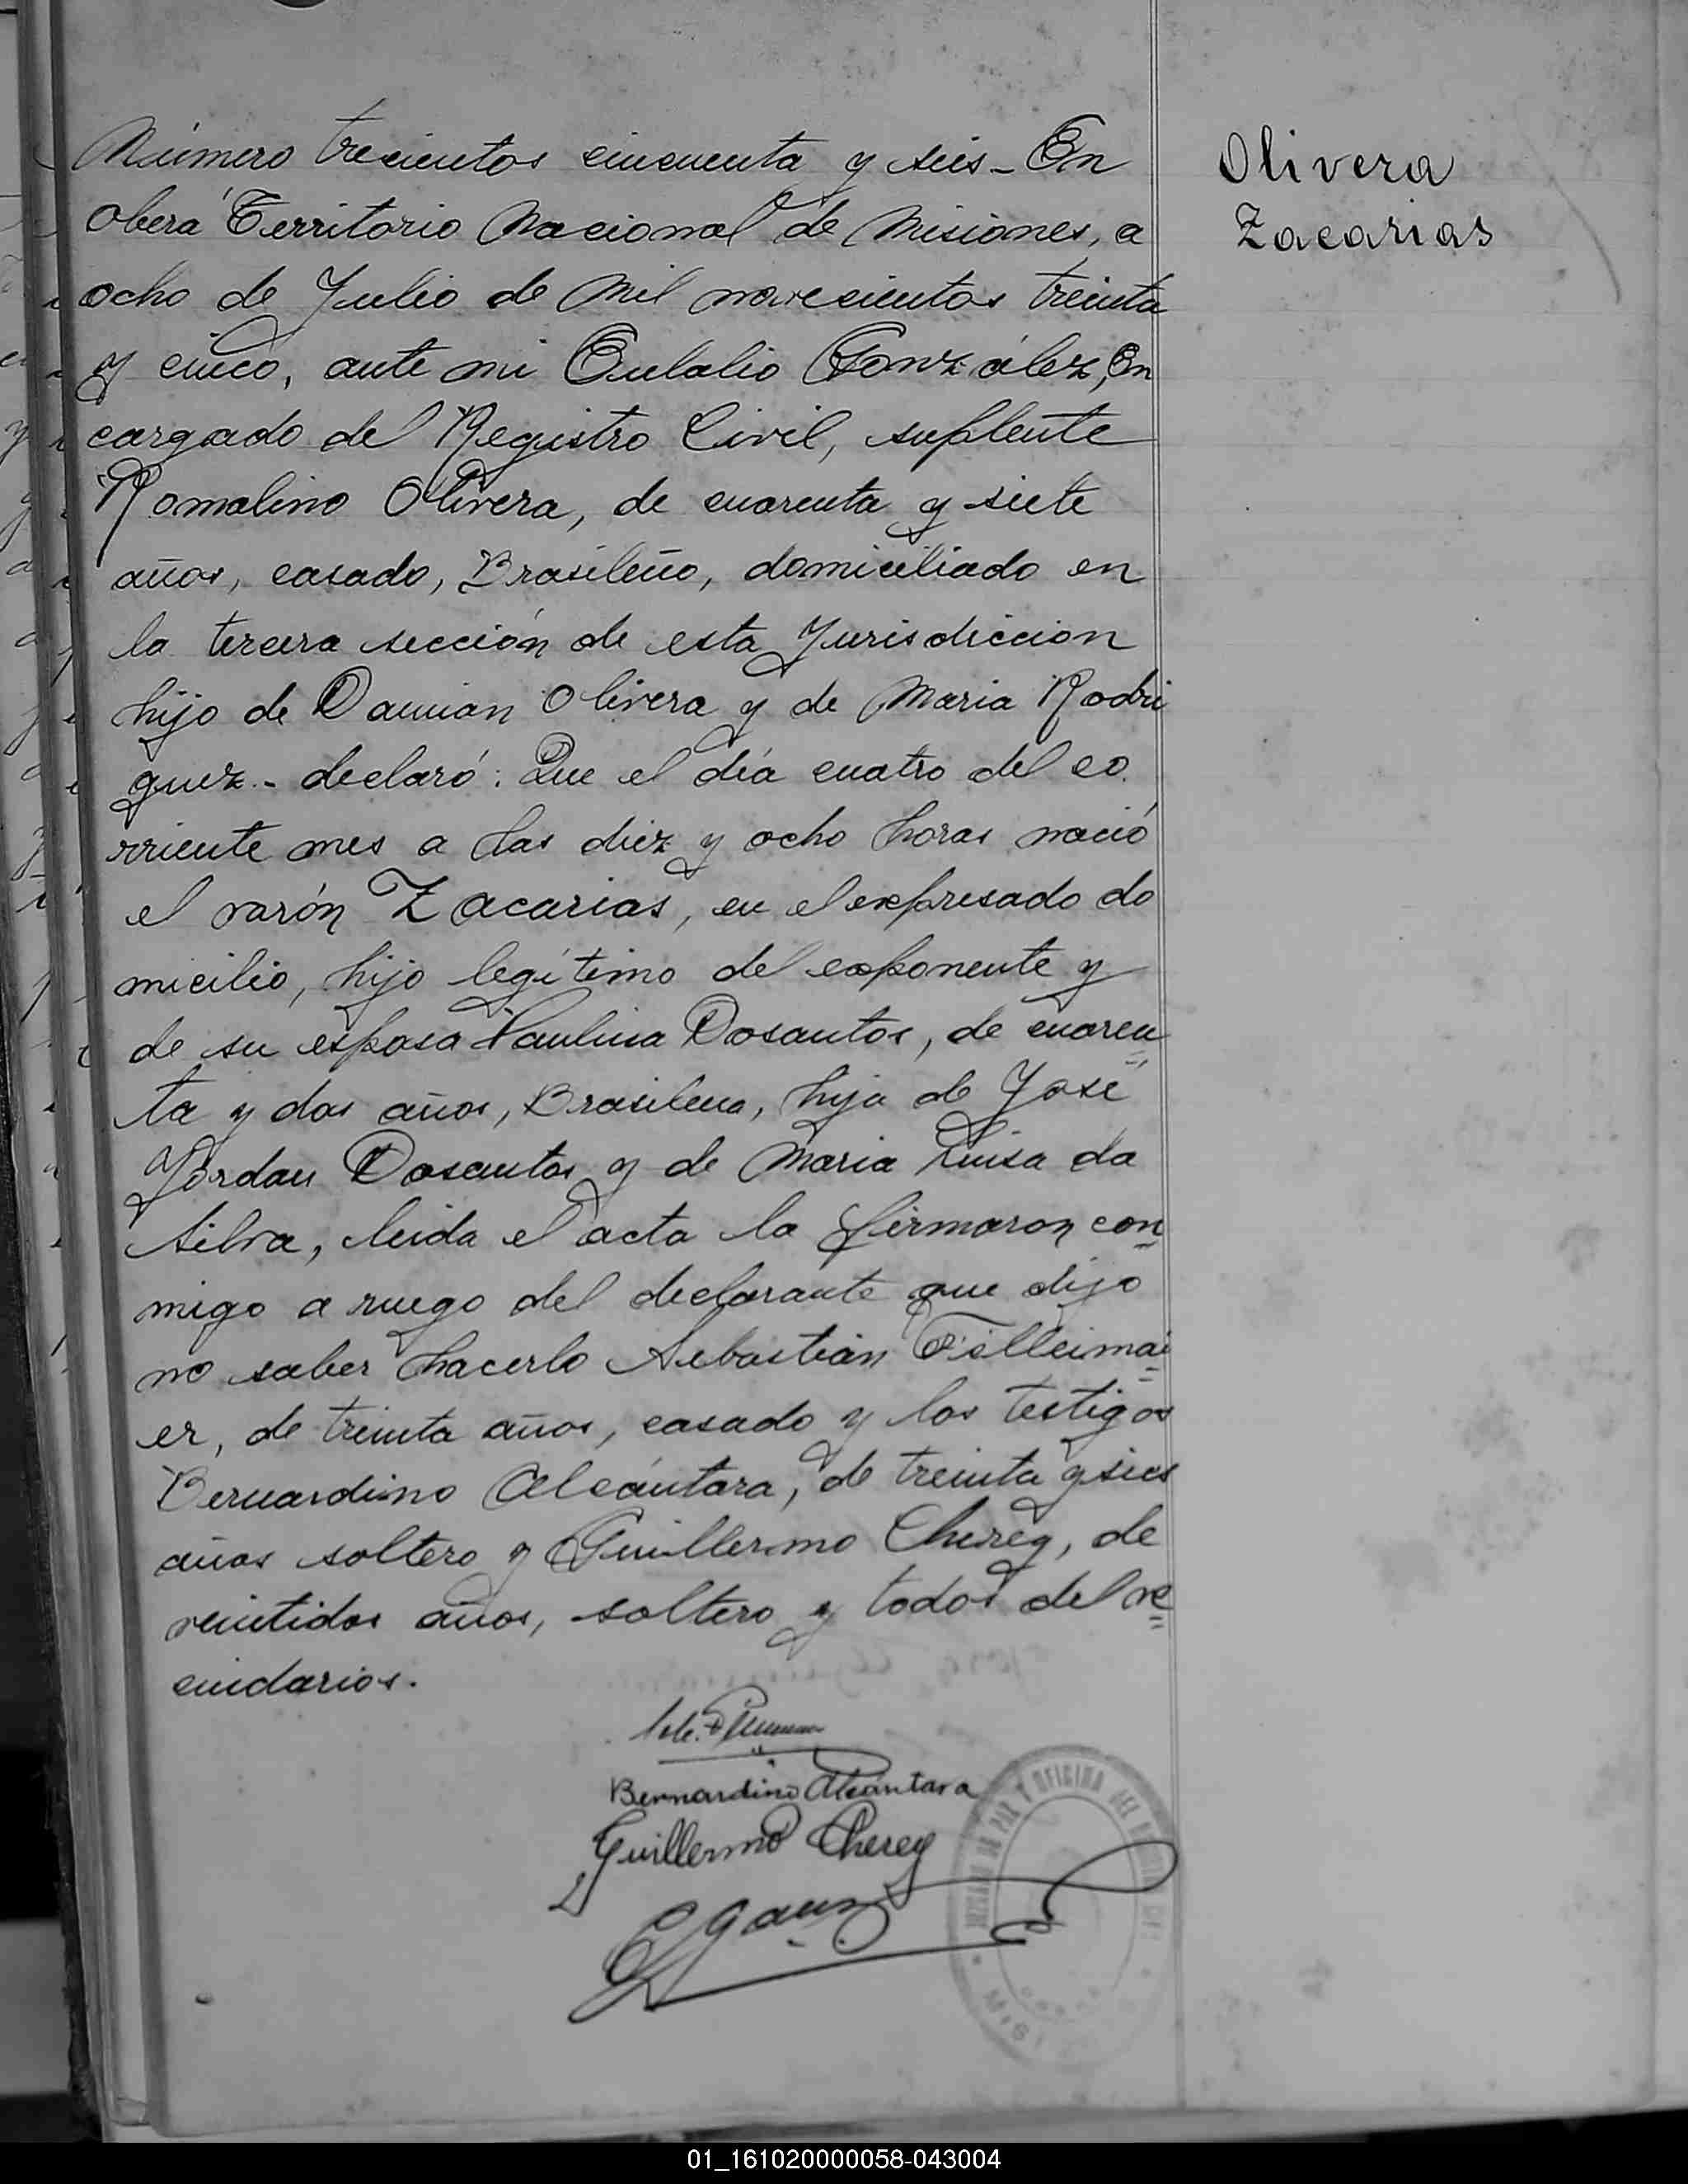 Número trecientos cincuenta y seis - En
Oberá Territorio Nacional de Misiones, a
ocho de Julio de Mil novecientos treinta
y cinco, ante mi Eulalio González, En
cargado del Registro Civil, suplente
Romalino Olivera, de cuarenta y siete
años, casado, Brasileño, domiciliado en
la tercera sección de esta Jurisdiccion
hijo de Damian Olivera y de Maria Rodri
guez.- declaró: Que el día cuatro del co.
rriente mes a las diez y ocho horas nació
el varón Zacarias, en el expresado do
micilio, hijo legítimo del exponente y
de su esposa Paulina Dosantos, de cuaren
ta y dos años, Brasilena, hija de José
Jordan Dosantos y de Maria Luisa da
Silva, leida el acta la firmaron con
migo a ruego del declarante que dijo
no saber hacerlo Sebastián Felleimai
er, de treinta años, casado y los testigos
Bernardino Alcántara, de treinta y seis
años soltero y Guillermo Cherey, de
veintidos años, soltero y todos del ve
cindarios.
Bernardino Alcántara
Guillermo Cherey
Olivera
Zacarias
DE PAZ Y OFICINA DEL
01_161020000058-043004